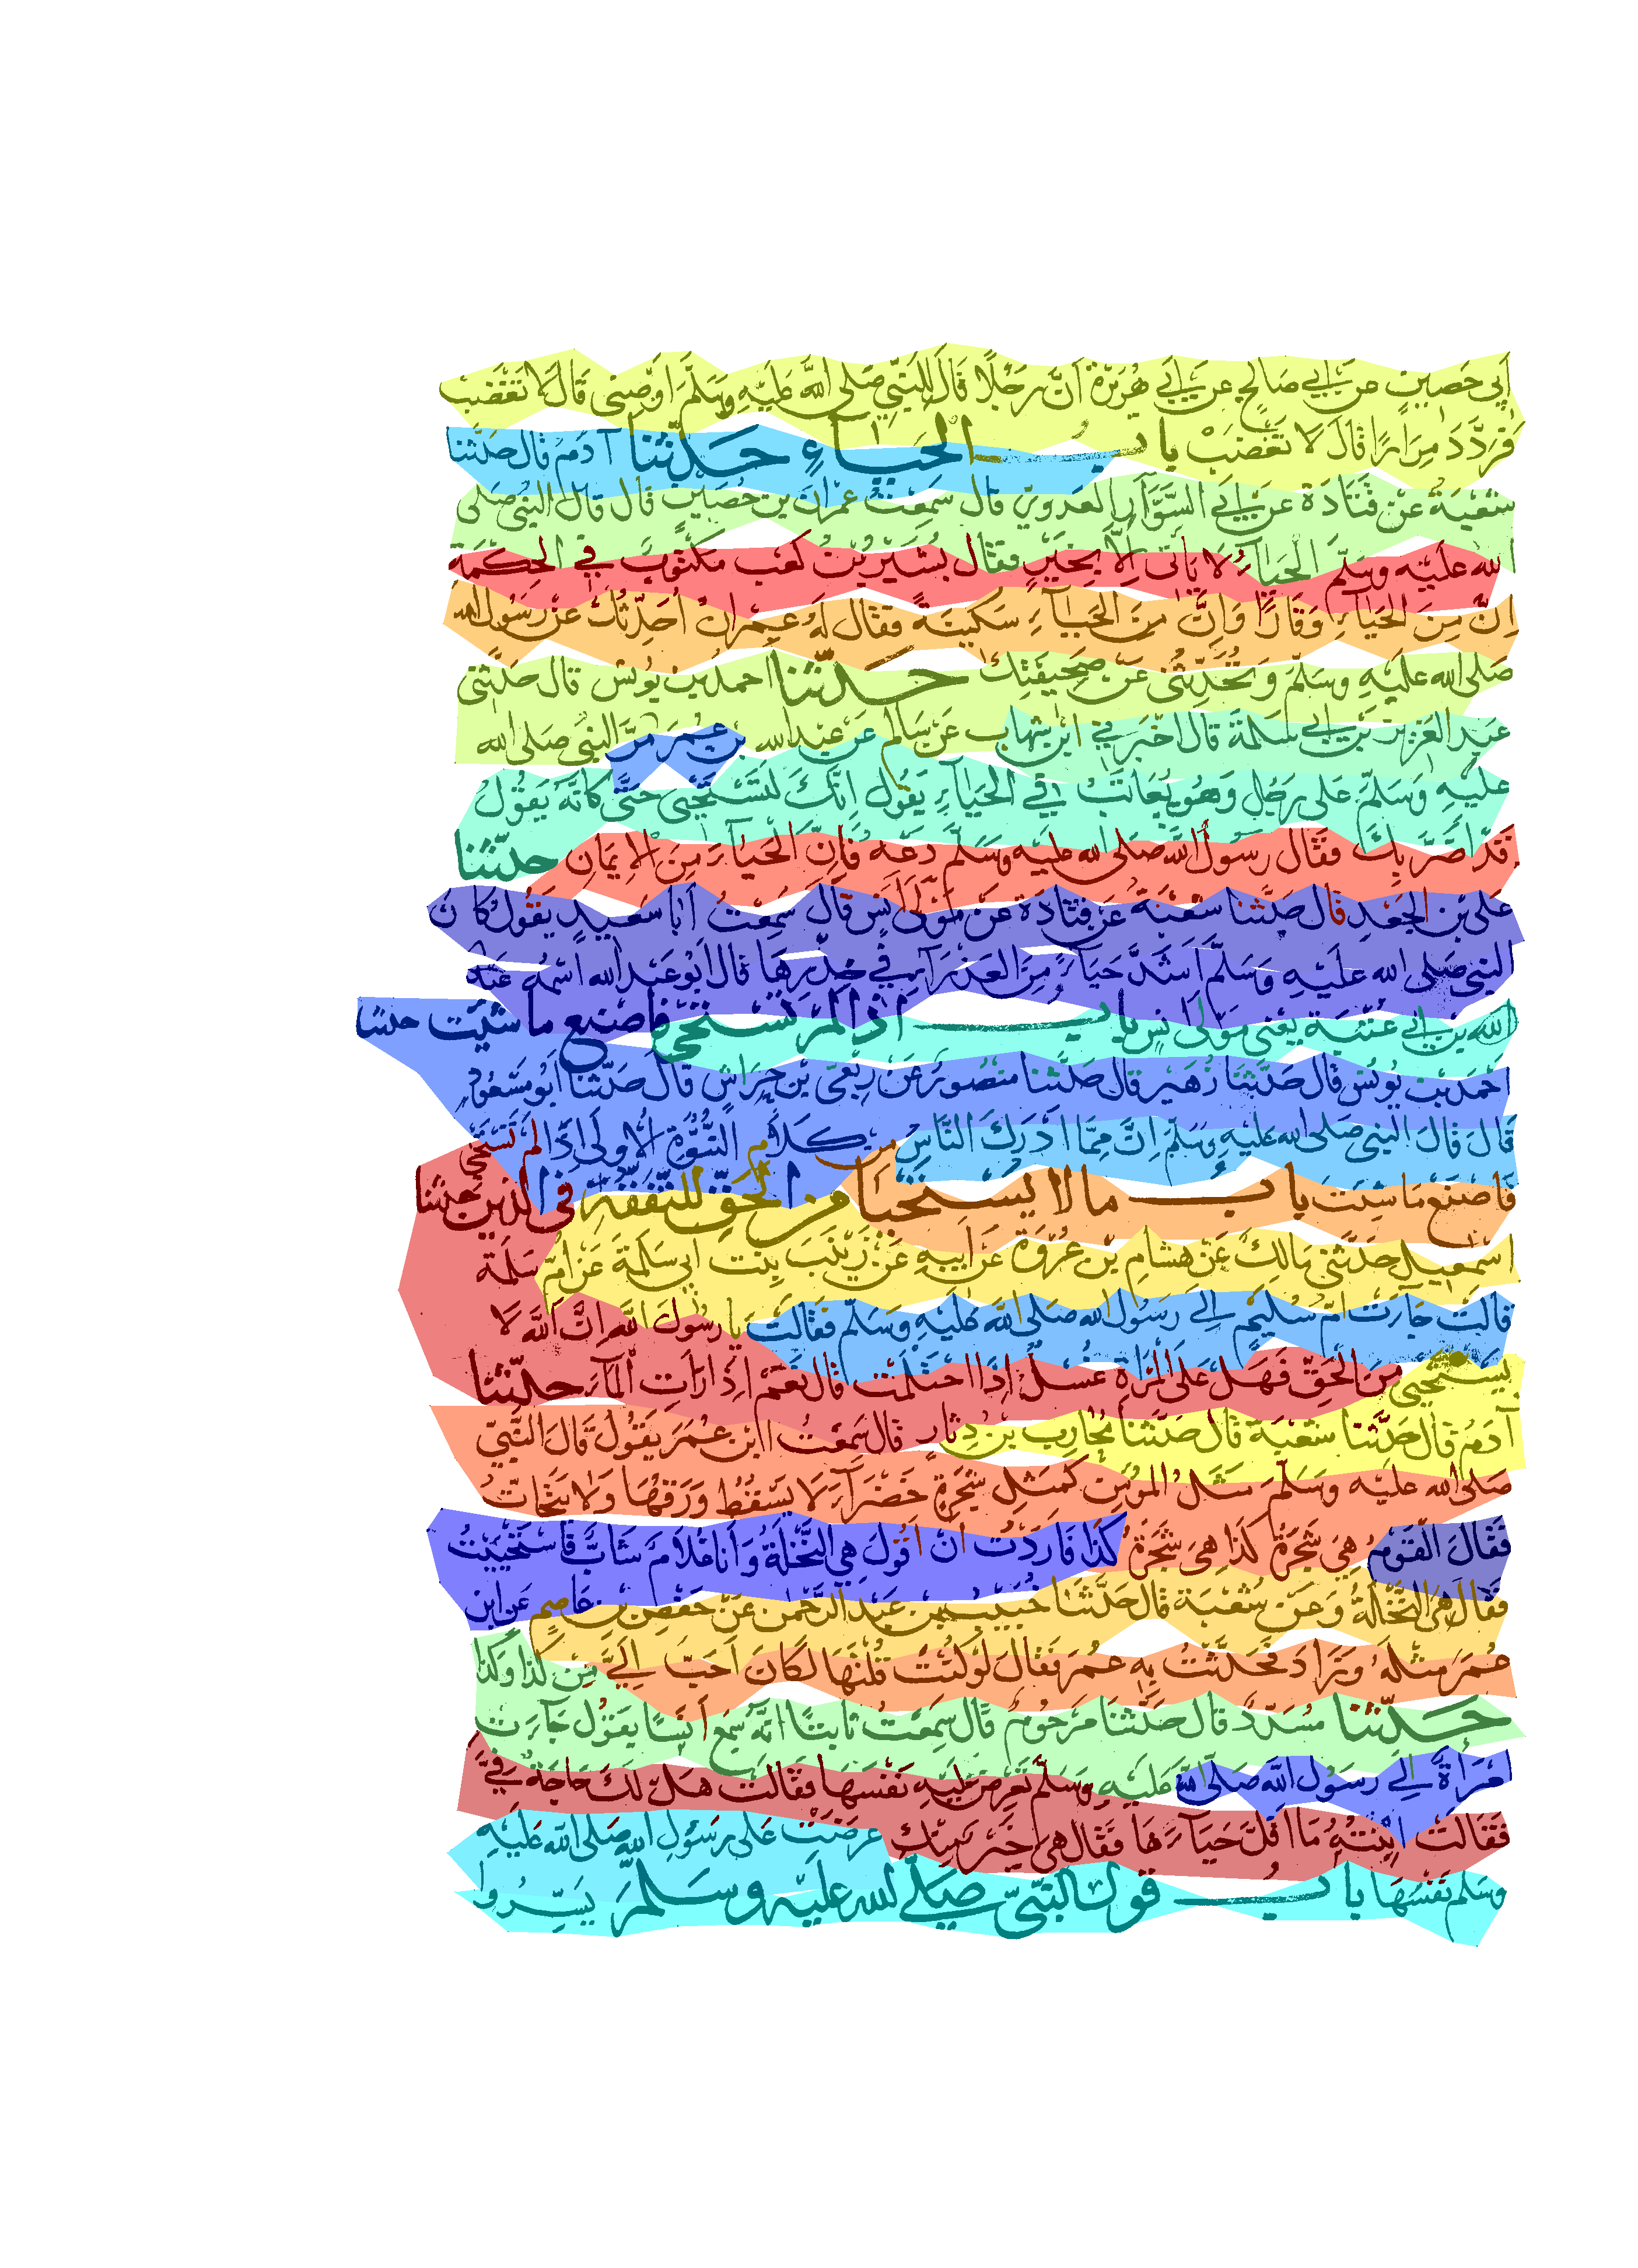 أبي حصين عن أبي صالح عن أبي هريرة أن رجلا قال للنبي صلى الله عليه وسلم أوصني قال لا تغضب
فردد مرارا قال لا تغضب باب الحياء حدثنا آدم قال حدثنا
شعبة عن قتادة عن أبي السوار العدوي قال سمعت عمران بن حصين قال قال النبي صلى
الله عليه وسلم الحياء لا يأتي إلا بخير فقال بشير بن كعب مكتوب في الحكمة
إن من الحياء وقارا وإن من الحياء سكينة فقال له عمران أحدثك عن رسول الله
صلى الله عليه وسلم وتحدثني عن صحيفتك حدثنا احمد بن يونس قال حدثني
عبد العزيز بن أبي سلمة قال أخبرني ابن شهاب عن سالم عن عبد الله بن عمر مر النبي صلى الله
عليه وسلم على رجل وهو يعاتب في الحياء يقول إنك لتستحيي حتى كأنه يقول
قد أضر بك فقال رسول الله صلى الله عليه وسلم دعه فإن الحياء من الإيمان حدثنا
على بن الجعد قال حدثنا شعبة عن قتادة عن مولى أنس قال سمعت أبا سعيد يقول كان
النبي صلى الله عليه وسلم أشد حياء من العذراء في خدرها قال أبو عبد الله اسمه عبد
الله بن أبي عتبة يعني مولى أنس باب اذا لم تستحي فاصنع ما شيت حدثنا
احمد بن يونس قال حدثنا زهير قال حدثنا منصور عن ربعي بن حراش قال حدثنا أبو مسعود
قال قال النبي صلى الله عليه وسلم إن مما أدرك الناس من كلام النبوة الاولى إذا لم تستحي
فاصنع ما شيت باب ما لا يستحيا من الحق للتفقه في الدين حدثنا
اسمعيل حدثني مالك عن هشام بن عروة عن أبيه عن زينب بنت أبي سلمة عن أم سلمة
قالت جاءت أم سليم إلى رسول الله صلى الله عليه وسلم فقالت يا رسول الله إن الله لا
يستحيي من الحق فهل على المرأة غسل إذا احتلمت قال نعم إذا رأت الماء حدثنا
آدم قال حدثنا شعبة قال حدثنا محارب بن دثار قال سمعت ابن عمر يقول قال النبي
صلى الله عليه وسلم مثل المؤمن كمثل شجرة خضراء لا يسقط ورقها ولا يتحات
فقال القوم هي شجرة كذا هي شجرة كذا فأردت أن أقول هي النخلة وأنا غلام شاب فاستحييت
فقال هي النخلة وعن شعبة قال حدثنا خبيب بن عبد الرحمن عن حفص بن عاصم عن ابن
عمر مثله وزاد فحدثت به عمر فقال لو كنت قلتها لكان أحب إلي من كذا وكذا
حدثنا مسدد قال حدثنا مرحوم قال سمعت ثابتا انه سمع أنسا يقول جاءت
امرأة إلى رسول الله صلى الله عليه وسلم تعرض عليه نفسها فقالت هل لك حاجة في
فقالت ابنته ما أقل حياءها فقال هي خير منك عرضت على رسول الله صلى الله عليه
وسلم نفسها باب قول النبي صلى الله عليه وسلم يسروا